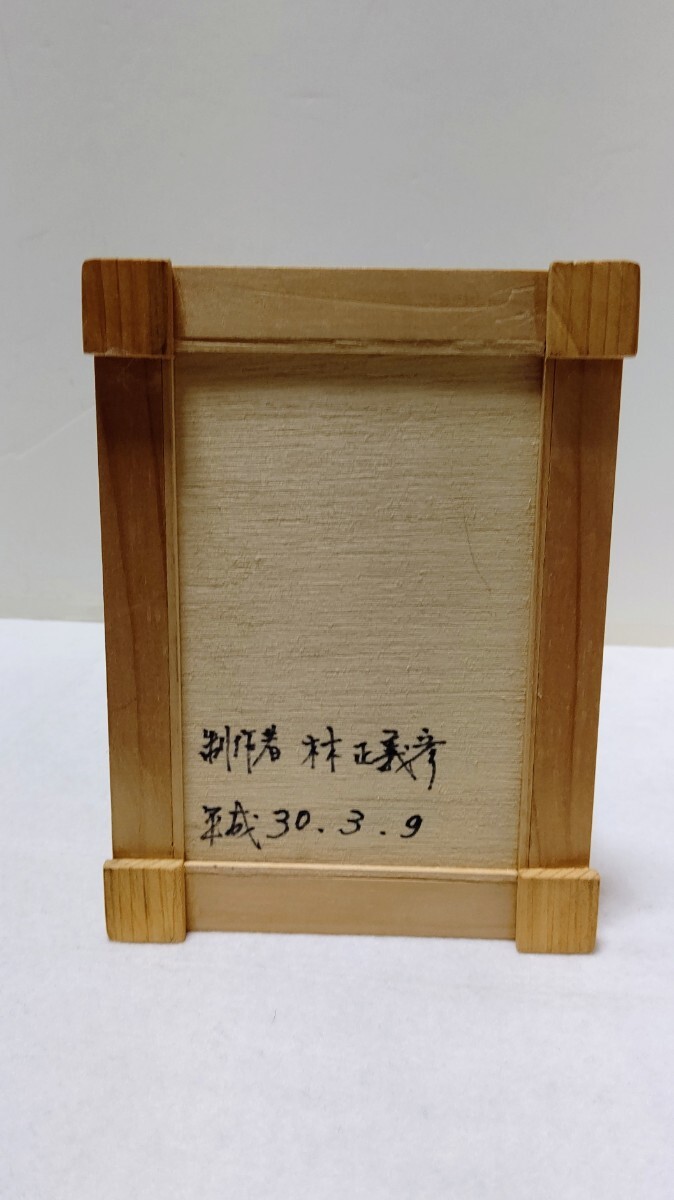 制作者 林 正義彦
平成30.3.9